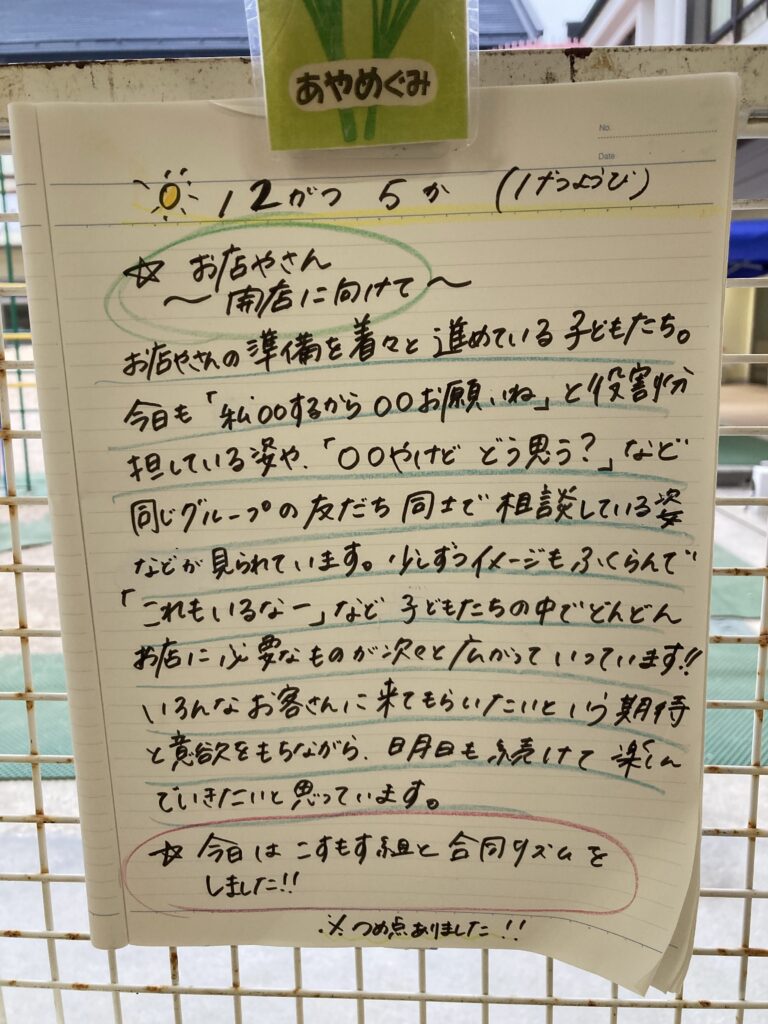 あやめぐみ
No.
Date
12がつ 5か (げつようび)
☆ お店やさん
〜開店に向けて〜
お店やさんの準備を着々と進めている子どもたち。
今日も「私〇〇するから〇〇お願いね」と役割分
担している姿や、「〇〇やけど どう思う?」など
同じグループの友だち同士で相談している姿
などが見られています。少しずつイメージもふくらんで
「これもいるなー」など子どもたちの中でどんどん
お店に必要なものが次々と広がっていっています!!
いろんなお客さんに来てもらいたいという期待
と意欲をもちながら、明日も続けて楽しん
でいきたいと思っています。
☆ 今日はこすもす組と合同リズムを
しました!!
※つめ点ありました!!